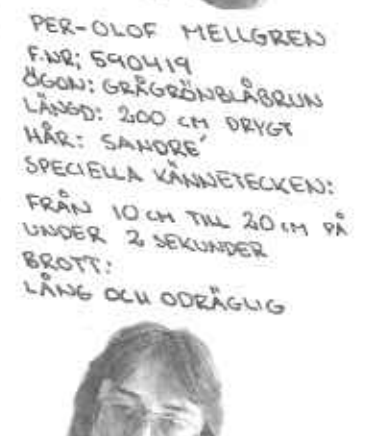 PER-OLOF MELLGREN
F.NR; 590419
ÖGON: GRÅGRÖNBLÅBRUN
LÄNGD: 200 CM DRYGT
HÅR: SANDRÉ
SPECIELLA KÄNNETECKEN:
FRÅN 10 CM TILL 20 CM PÅ
UNDER 2 SEKUNDER
BROTT:
LÅNG OCH ODRÄGLIG